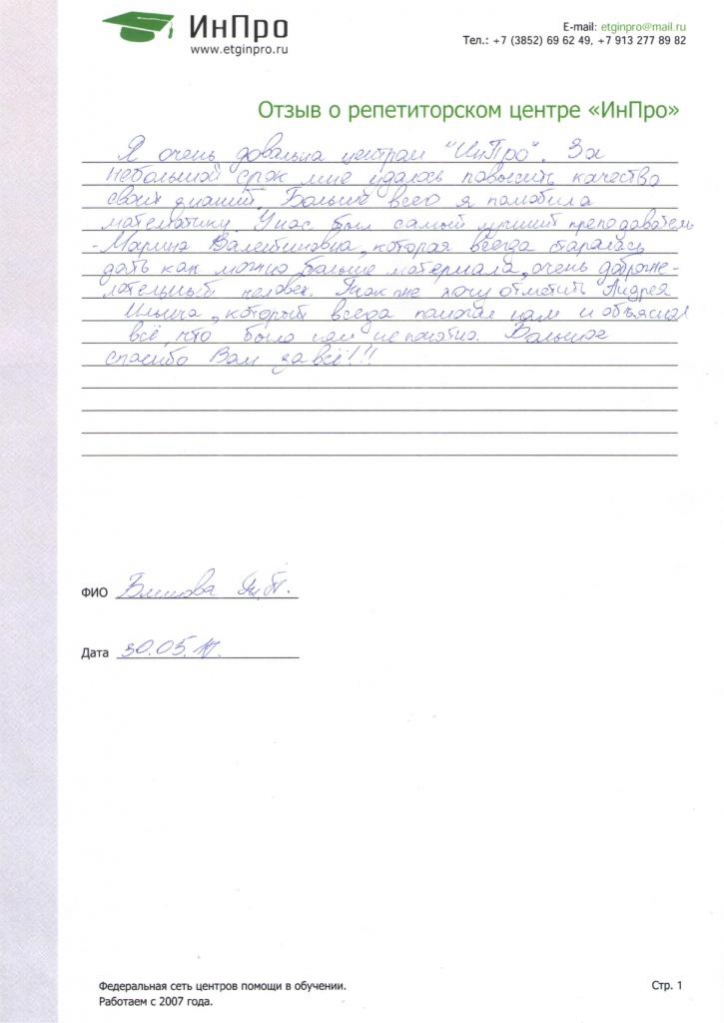 ИнПро
www.etginpro.ru
E-mail: etginpro@mail.ru
Тел.: +7 (3852) 69 62 49, +7 913 277 89 82
Отзыв о репетиторском центре «ИнПро»
Я очень довольна центром "ИнПро". За
небольшой срок мне удалось повысить качество
своих знаний. Больше всего я полюбила
математику. У нас был самый лучший преподаватель
- Марина Валентиновна, которая всегда старалась
дать как можно больше материала, очень доброже-
лательный человек. Так же хочу отметить Андрея
Ильича, который всегда помогал нам и объяснял
всё, что было нам не понятно. Большое
спасибо Вам за всё!!!
ФИО
Дата 30.05.17.
Федеральная сеть центров помощи в обучении.
Работаем с 2007 года.
Стр. 1